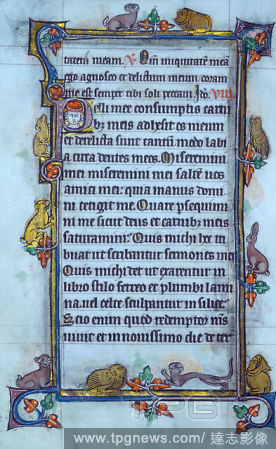 tatem meam. V. Qm̄ iniquitatem meā
ego agnosco et delictum meum coram
me est semper tibi soli peccaui. Lc̄o. VIII.
Pelli mee consumptis carni
bꝫ meis adhesit os meum
et derelicta sunt tantū modo labi
a circa dentes meos. Miseremini
mei miseremini mei saltē uos
amici mei: quia manus domi
ni tetigit me. Quare persequimi
ni me sicut deus et carnibꝫ meis
saturamini: Quis michi tribuat
ut scribantur sermones mei
Quis michi det ut exarentur in
libro stilo ferreo et plumbi lami
na. uel celte sculpantur in silice.
Scio enim quod redemptor m̄s
uiuit et in nouissimo die de ter
TPG
www.tpgnews.com/ 達志影像